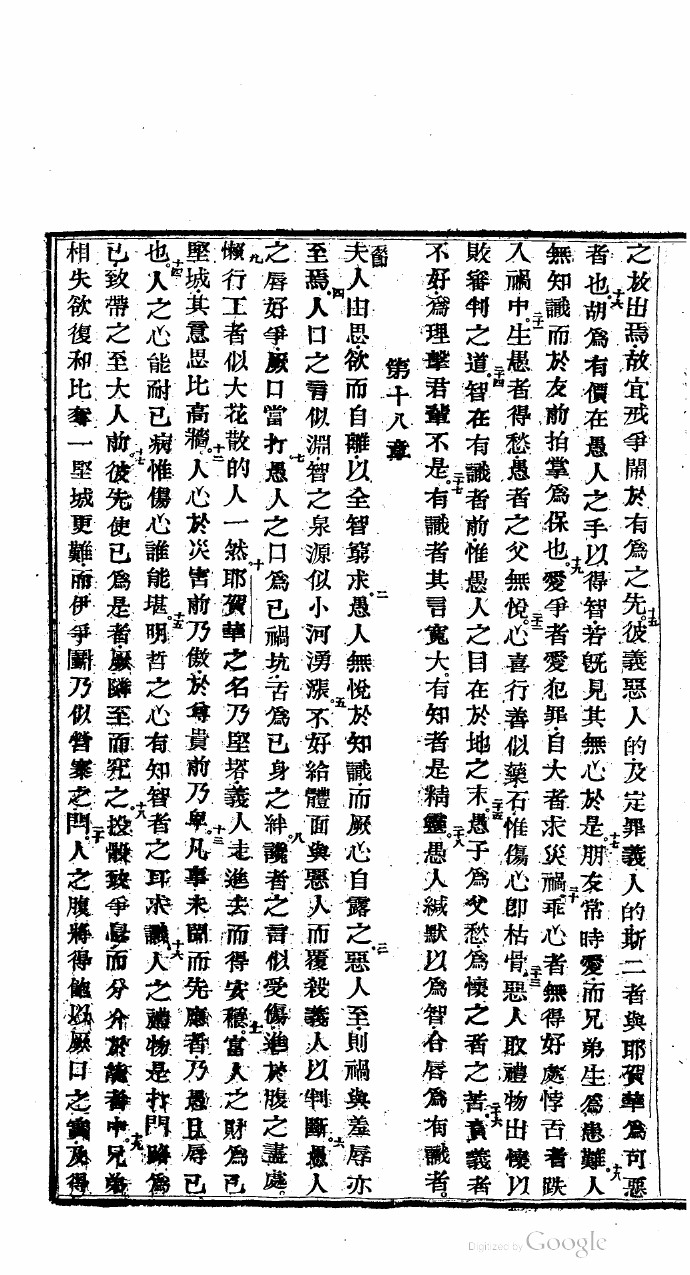 之放出焉故宜戒爭開於有爲之先十五彼義惡人的及定罪義人的斯二者與耶賀華爲可惡
者也十六胡爲有價在愚人之手以得智若既見其無心於是十七朋友常時愛而兄弟生爲患難十八人
無知識而於友前拍掌爲保也十九愛爭者愛犯罪自大者求災禍二十乖心者無得好處悖舌者跌
入禍中二十一生愚者得愁愚者之父無悅二十二心喜行善似藥石惟傷心卽枯骨二十三惡人取禮物出懷以
敗審判之道二十四智在有識者前惟愚人之目在於地之末二十五愚子爲父愁爲懷之者之苦二十六責義者
不好爲理擊君輩不是二十七有識者其言寬大有知者是精靈二十八愚人緘默以爲智合唇爲有識者
第十八章
夫人由思欲而自離以全智窮求二愚人無悅於知識而厥心自露之三惡人至則禍與羞辱亦
至焉四人口之言似淵智之泉源似小河湧漲五不好給體面與惡人而覆殺義人以判斷六愚人
之唇好爭厥口當打七愚人之口爲已禍坑舌爲已身之絆八讒者之言似受傷進於腹之盡處
九懶行工者似大花散的人一然十耶賀華之名乃堅塔義人走進去而得安穩十一富人之財爲已
堅城其意思比高牆十二人心於災害前乃傲於尊貴前乃卑十三凡事未聞而先應者乃愚且辱已
也十四人之心能耐已病惟傷心誰能堪十五明哲之心有知智者之耳求識十六人之禮物是打門路爲
已致帶之至大人前十七彼先使已爲是者厥隣至而究之十八投骰致爭息而分介於能者中十九兄弟
相失欲復和比奪一堅城更難而伊爭鬬乃似營寨之閂二十人之腹將得飽以厥口之實及得
Digitized by Google